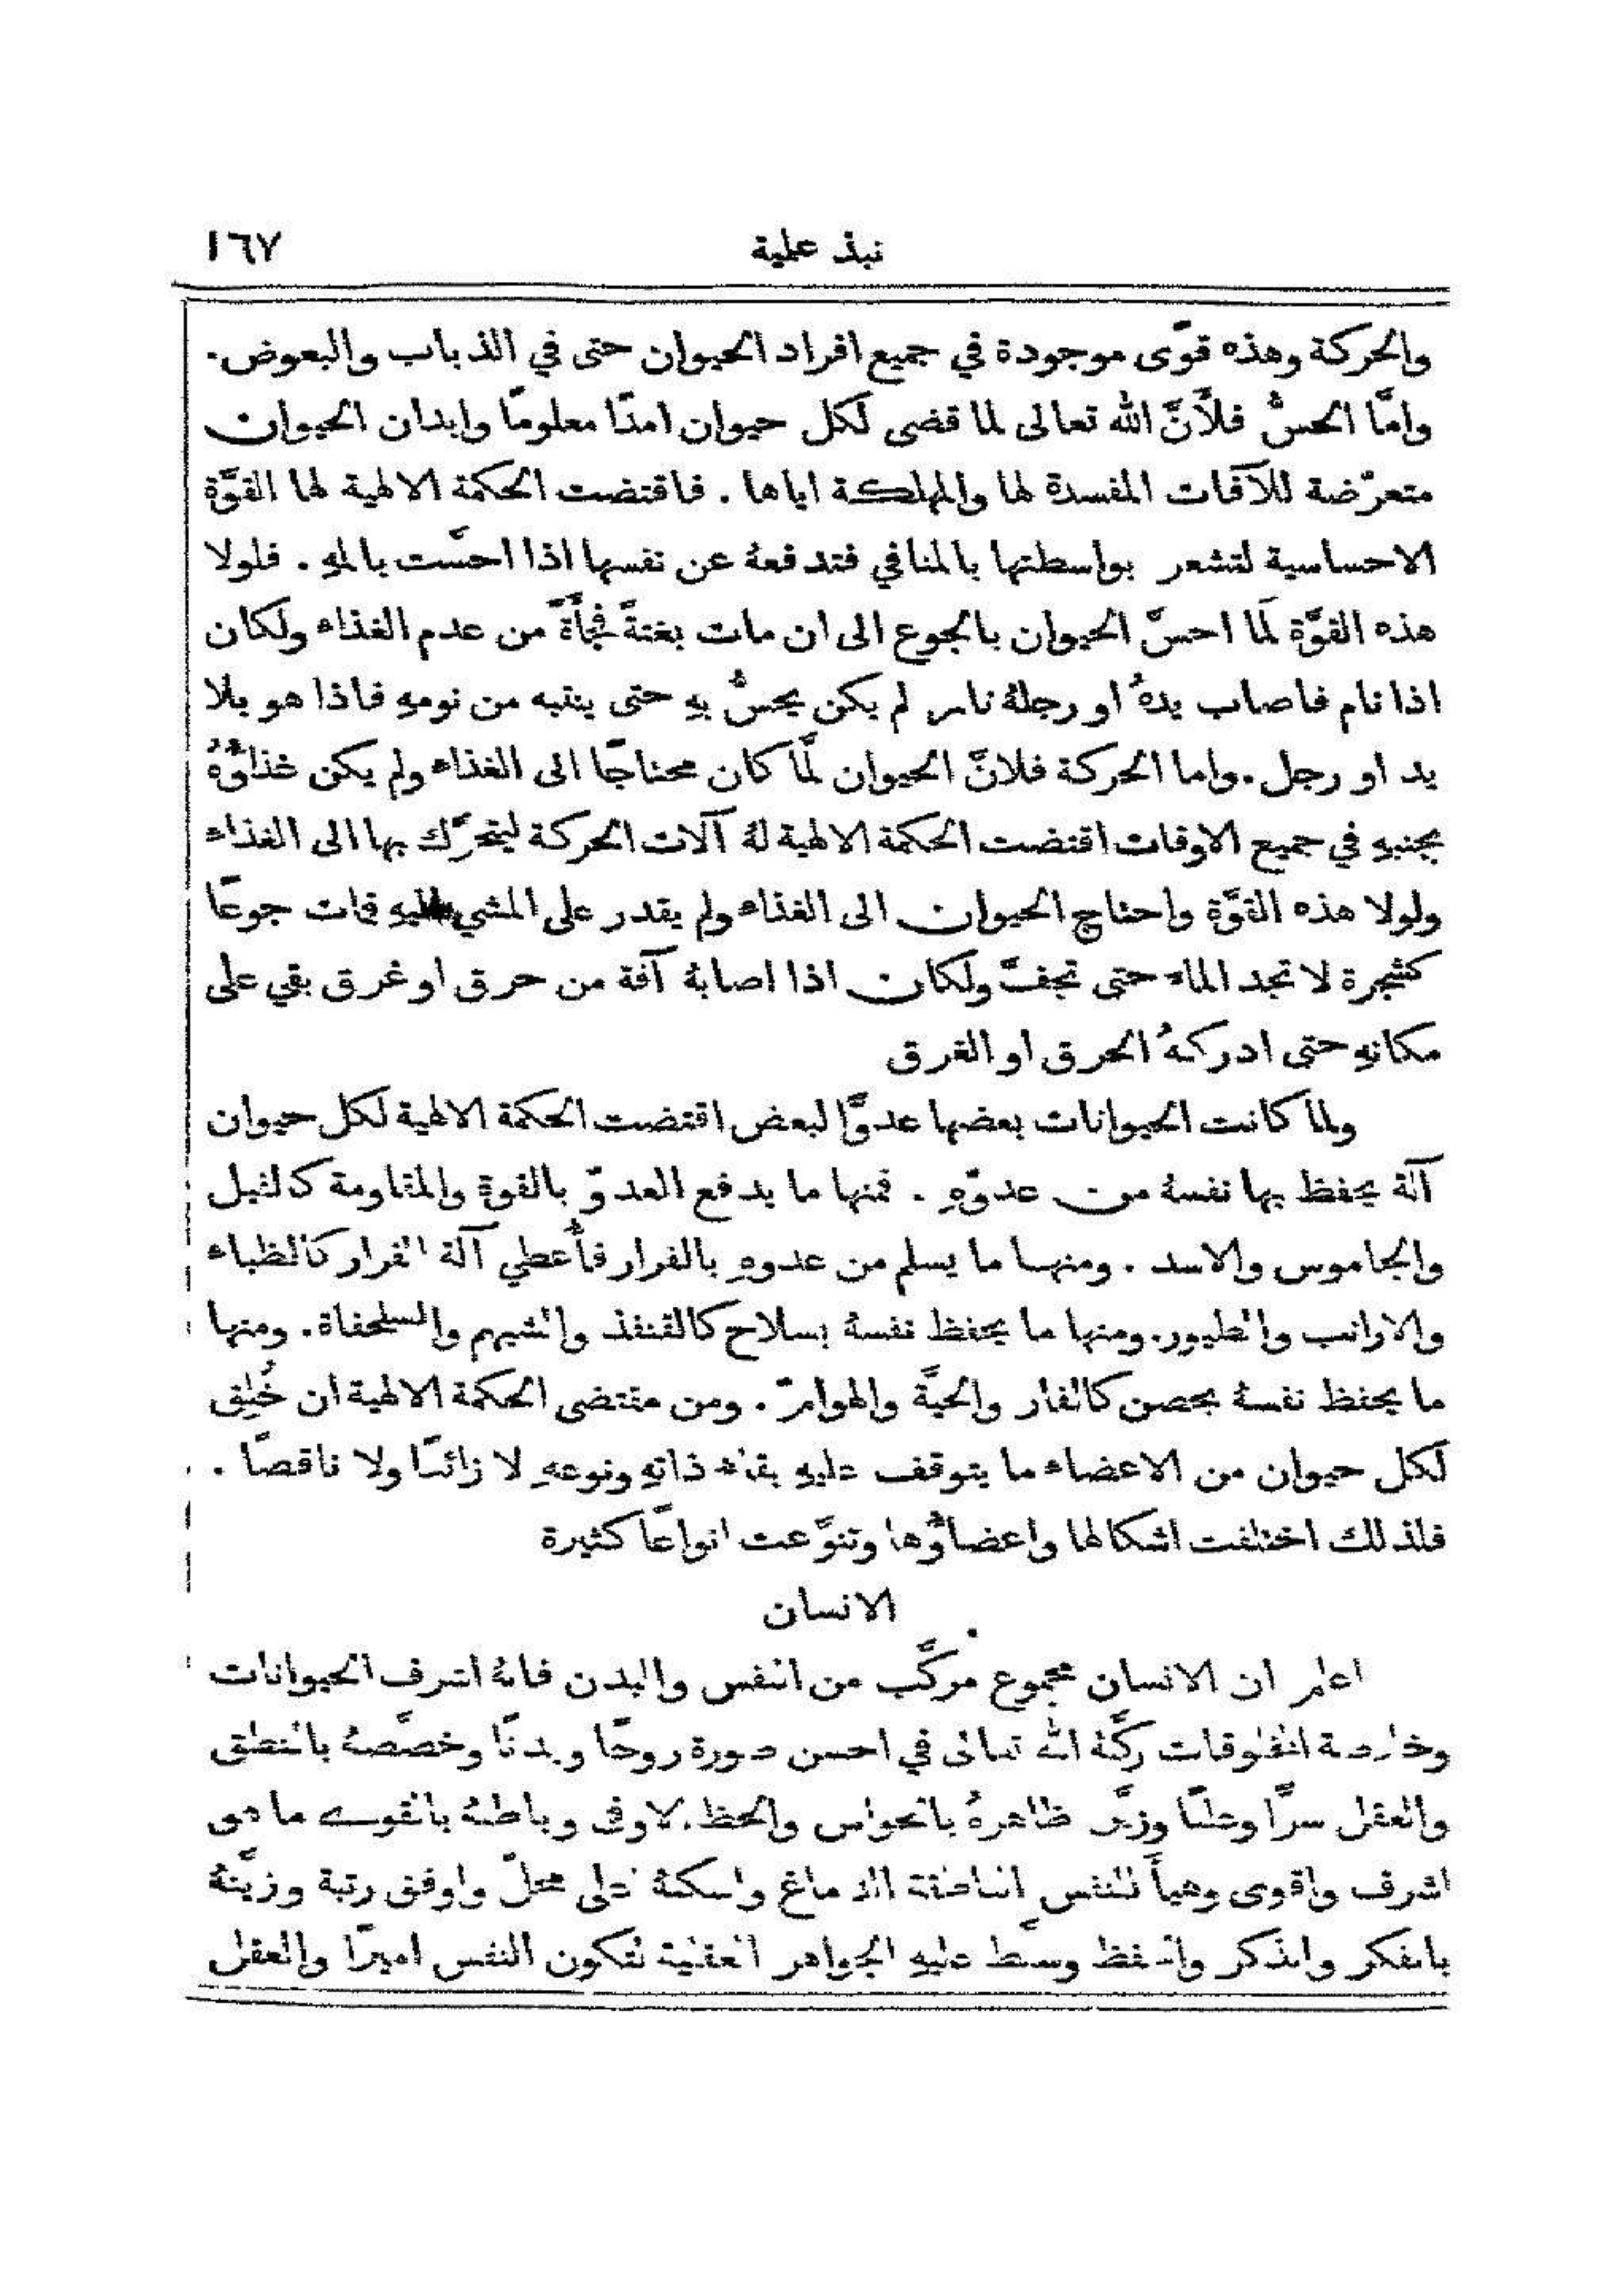 نبذ علمية ١٦٧
والحركة وهذه قوًى موجودة في جميع افراد الحيوان حتى في الذباب والبعوض.
وامَّا الحسُّ فلأَنَّ الله تعالى لما قضى لكل حيوان امدًا معلومًا وابدان الحيوان
متعرّضة للآفات المفسدة لها والمهلكة اياها . فاقتضت الحكمة الالهية لها القوَّة
الاحساسية لتشعر بواسطتها بالمنافي فتدفعهُ عن نفسها اذا احسَّت بالمهِ . فلولا
هذه القوَّة لَمَا احسَّ الحيوان بالجوع الى ان مات بغتةً فجأَةً من عدم الغذاء ولكان
اذا نام فاصاب يدهُ او رجلهُ نار لم يكن يحسُّ بهِ حتى ينتبه من نومهِ فاذا هو بلا
يد او رجل . واما الحركة فلانَّ الحيوان لمَّا كان محتاجًا الى الغذاء ولم يكن غذاؤُهُ
بجنبهِ في جميع الاوقات اقتضت الحكمة الالهية لهُ آلات الحركة ليتحرَّك بها الى الغذاء
ولولا هذه القوَّة واحتاج الحيوان الى الغذاء ولم يقدر على المشي اليهِ فمات جوعًا
كشجرة لا تجد الماء حتى تجفَّ ولكان اذا اصابهُ آفة من حرق او غرق بقي على
مكانهِ حتى ادركهُ الحرق او الغرق
ولما كانت الحيوانات بعضها عدوًّا لبعض اقتضت الحكمة الالهية لكل حيوان
آلة يحفظ بها نفسهُ من عدوّهِ . فمنها ما يدفع العدوّ بالقوة والمقاومة كالفيل
والجاموس والاسد . ومنها ما يسلم من عدوهِ بالفرار فأُعطي آلة الفرار كالظباء
والارانب والطيور. ومنها ما يحفظ نفسهُ بسلاح كالقنفذ والشيهم والسلحفاة. ومنها
ما يحفظ نفسهُ بحصن كالفار والحيَّة والهوامّ . ومن مقتضى الحكمة الالهية ان خُلِق
لكل حيوان من الاعضاء ما يتوقف عليهِ بقاء ذاتهِ ونوعهِ لا زائدًا ولا ناقصًا .
فلذلك اختلفت اشكالها واعضاؤُها وتنوَّعت انواعًا كثيرة
الانسان
اعلم ان الانسان مجموع مركَّب من النفس والبدن فانهُ اشرف الحيوانات
وخلاصة المخلوقات ركَّبهُ الله تعالى في احسن صورة روحًا وبدنًا وخصَّصهُ بالنطق
والعقل سرًّا وعلنًا وزيَّن ظاهرهُ بالحواس والحظ الاوفى وباطنهُ بالقوى ما هو
اشرف واقوى وهيأَ للنفس الناطقة الدماغ واسكنهُ اعلى محلّ واوفق رتبة وزيَّنهُ
بالفكر والذكر والحفظ وسلَّط عليهِ الجواهر العقلية لتكون النفس اميرًا والعقل